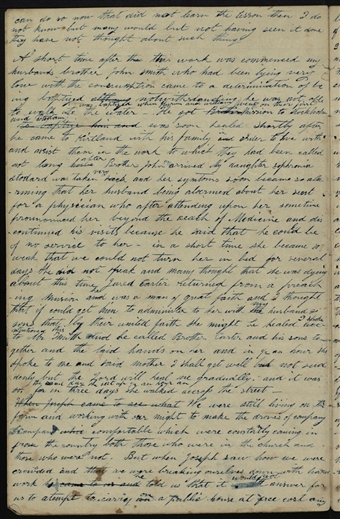 can do so now that did not learn the lesson then I do
not know but many would but not having seen it done
they have not thought about such thing
A short time after the work was commenced my
husbands brother John Smith who had been lying very
low with the consumption came to a determination of be
ing baptized notwithstanding he was not able
to walk to the water He got
and was soon healed shortly after
he came to Kirtland with his family in order to live with
and assist them in the work to which they had been called
not long after brother John arrived My daughter sophronia
stodard was taken very sick and her symtoms soon became so ala
rming that her husband being alarmed about her sent
for a physician who after attending upon her sometime
pronounced her beyond the reach of Medicine and dis
continued his visits because he said that he could be
of no service to her — in a short time she became so
weak that we could not turn her in bed for several
days she did not speak and many thought that she was dying
about this time Jared Carter returned from a preach
ing Mission and was a man of great faith and I thought
that if could get them to administer to her with my husband &
sons that by their united faith she might be healed
to Mr Smith and he called Brother Carter and his sons to
gether and the laid hands on her and in ½ an hour she
spoke to me and said mother I shall get well but not sud
denly but the Lord will heal me gradually and it was
in three days she walked accross the street
was still living on the
farm and working with our might to make the droves of company
comfortable which were constantly coming in
from the country both those who were in the church and
those who were not But when Joseph saw how we were
crowded and that we were breaking ourselves down with hard
work he told us that it would not answer for
us to attempt to carry on a public house at free cost any